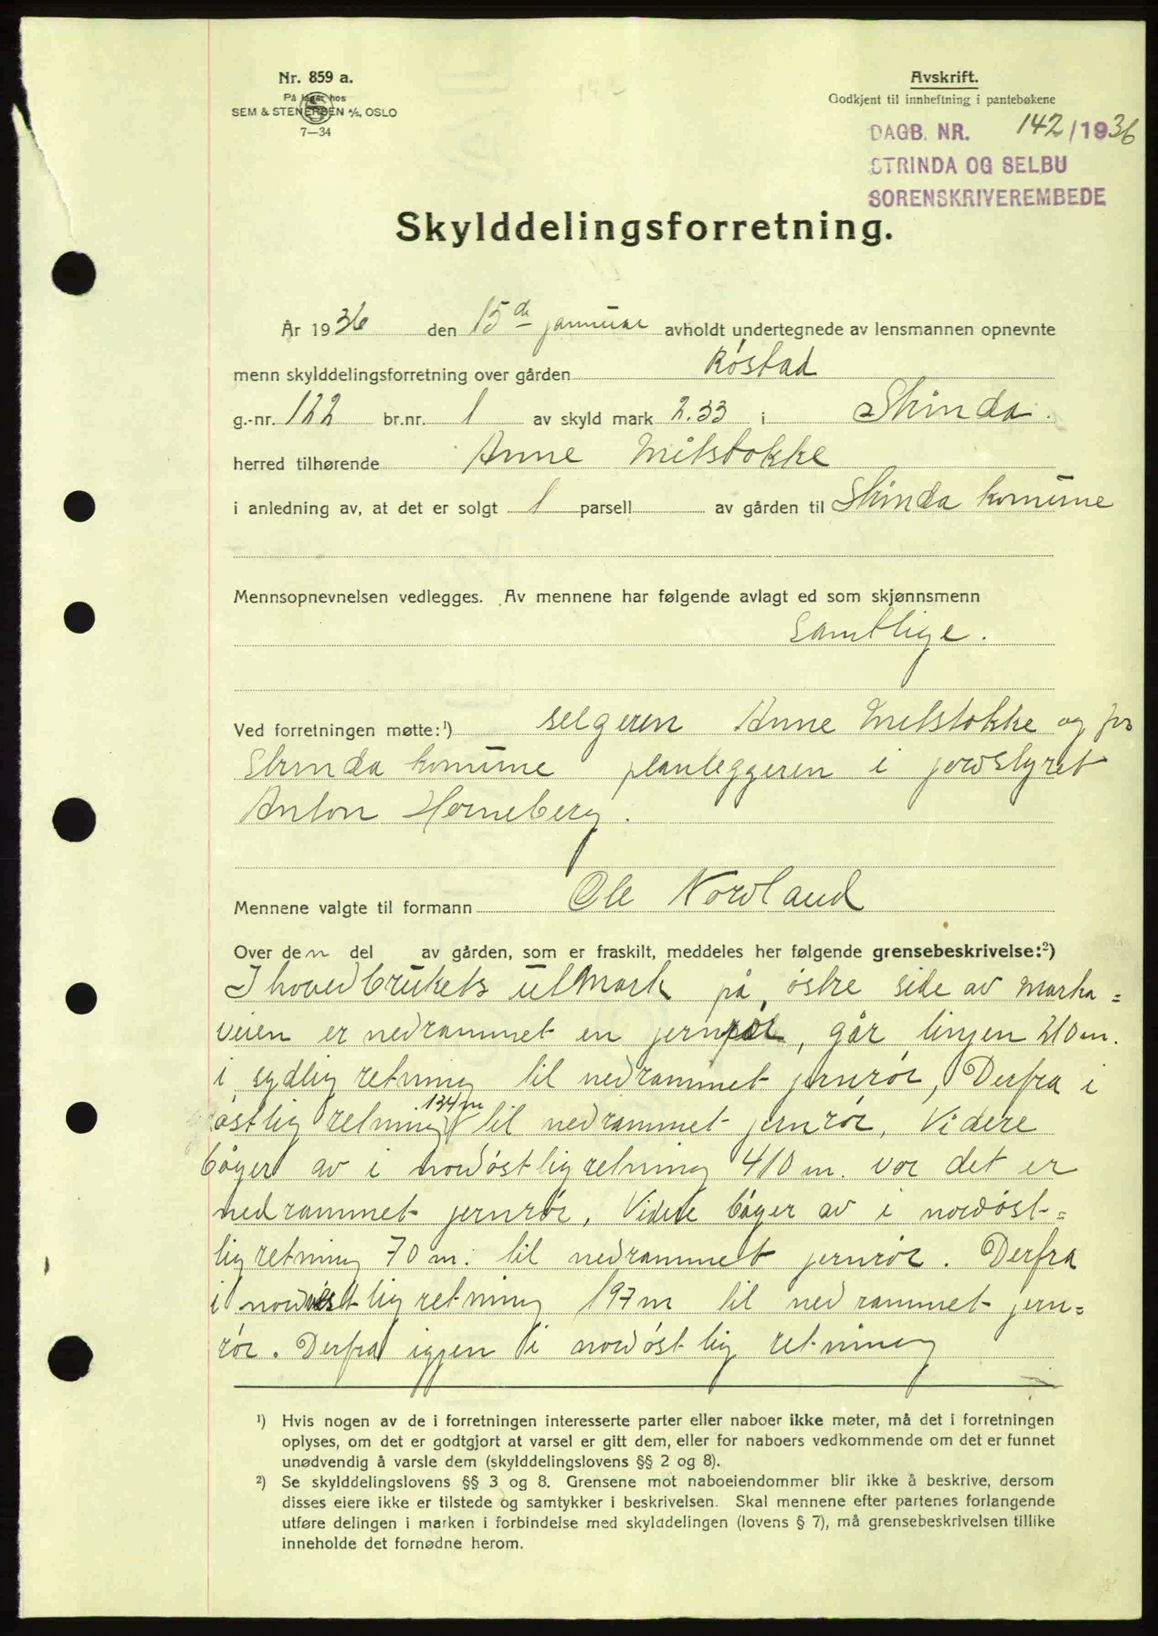 Nr. 859 a.
På lager hos
SEM & STENERSEN A/S, OSLO
7—34
Avskrift.
Godkjent til innheftning i pantebøkene
DAGB. NR. 142/1936
STRINDA OG SELBU
SORENSKRIVEREMBEDE
Skylddelingsforretning.
År 1936 den 15de januar avholdt undertegnede av lensmannen opnevnte
menn skylddelingsforretning over gården Røstad
g.-nr. 122 br.nr. 1 av skyld mark 2.33 i Strinda.
herred tilhørende Anne Mitstokke
i anledning av, at det er solgt 1 parsell av gården til Strinda komune
Mennsopnevnelsen vedlegges. Av mennene har følgende avlagt ed som skjønnsmenn
Samtlige.
Ved forretningen møtte:¹) selgeren Anne Mitstokke og for
Strinda komune planleggeren i jordstyret
Anton Horneberg.
Mennene valgte til formann Ole Nordland
Over den del av gården, som er fraskilt, meddeles her følgende grensebeskrivelse:²)
I hovedbrukets utmark på østre side av marka=
veien er nedrammet en jernrør, går linjen 210 m.
i sydlig retning til nedrammet jernrør, Derfra i
østlig retning 134 m til nedrammet jernrør, Videre
bøyer av i nordøstlig retning 410 m. vor det er
nedrammet jernrør, Videre bøyer av i nordøst=
lig retning 70 m. til nedrammet jernrør. Derfra
i nordvestlig retning 197 m til nedrammet jern=
rør. Derfra igjen i nordøstlig retning
¹) Hvis nogen av de i forretningen interesserte parter eller naboer ikke møter, må det i forretningen
oplyses, om det er godtgjort at varsel er gitt dem, eller for naboers vedkommende om det er funnet
unødvendig å varsle dem (skylddelingslovens §§ 2 og 8).
²) Se skylddelingslovens §§ 3 og 8. Grensene mot naboeiendommer blir ikke å beskrive, dersom
disses eiere ikke er tilstede og samtykker i beskrivelsen. Skal mennene efter partenes forlangende
utføre delingen i marken i forbindelse med skylddelingen (lovens § 7), må grensebeskrivelsen tillike
inneholde det fornødne herom.